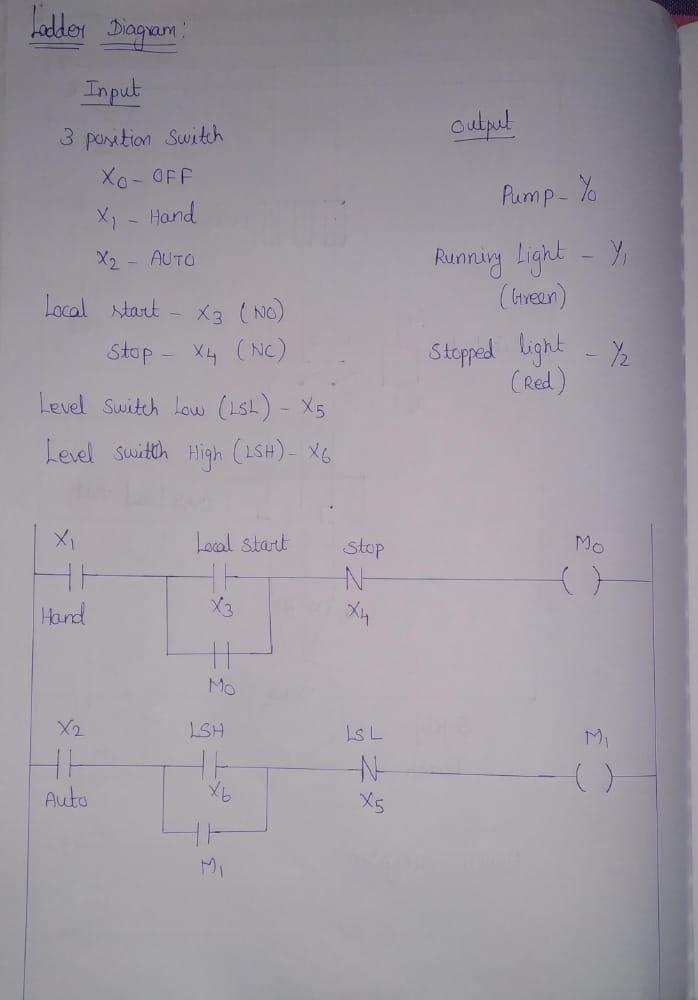 Ladder Diagram:
Input
3 position Switch
X0 - OFF
X1 - Hand
X2 - AUTO
Local start - X3 (NO)
Stop - X4 (NC)
Level Switch Low (LSL) - X5
Level switth High (LSH) - X6
Output
Pump - Y0
Running Light - Y1
(Green)
Stopped light - Y2
(Red)
X1 Local start Stop M0
Hand X3 X4
M0
X2 LSH LSL M1
Auto X6 X5
M1